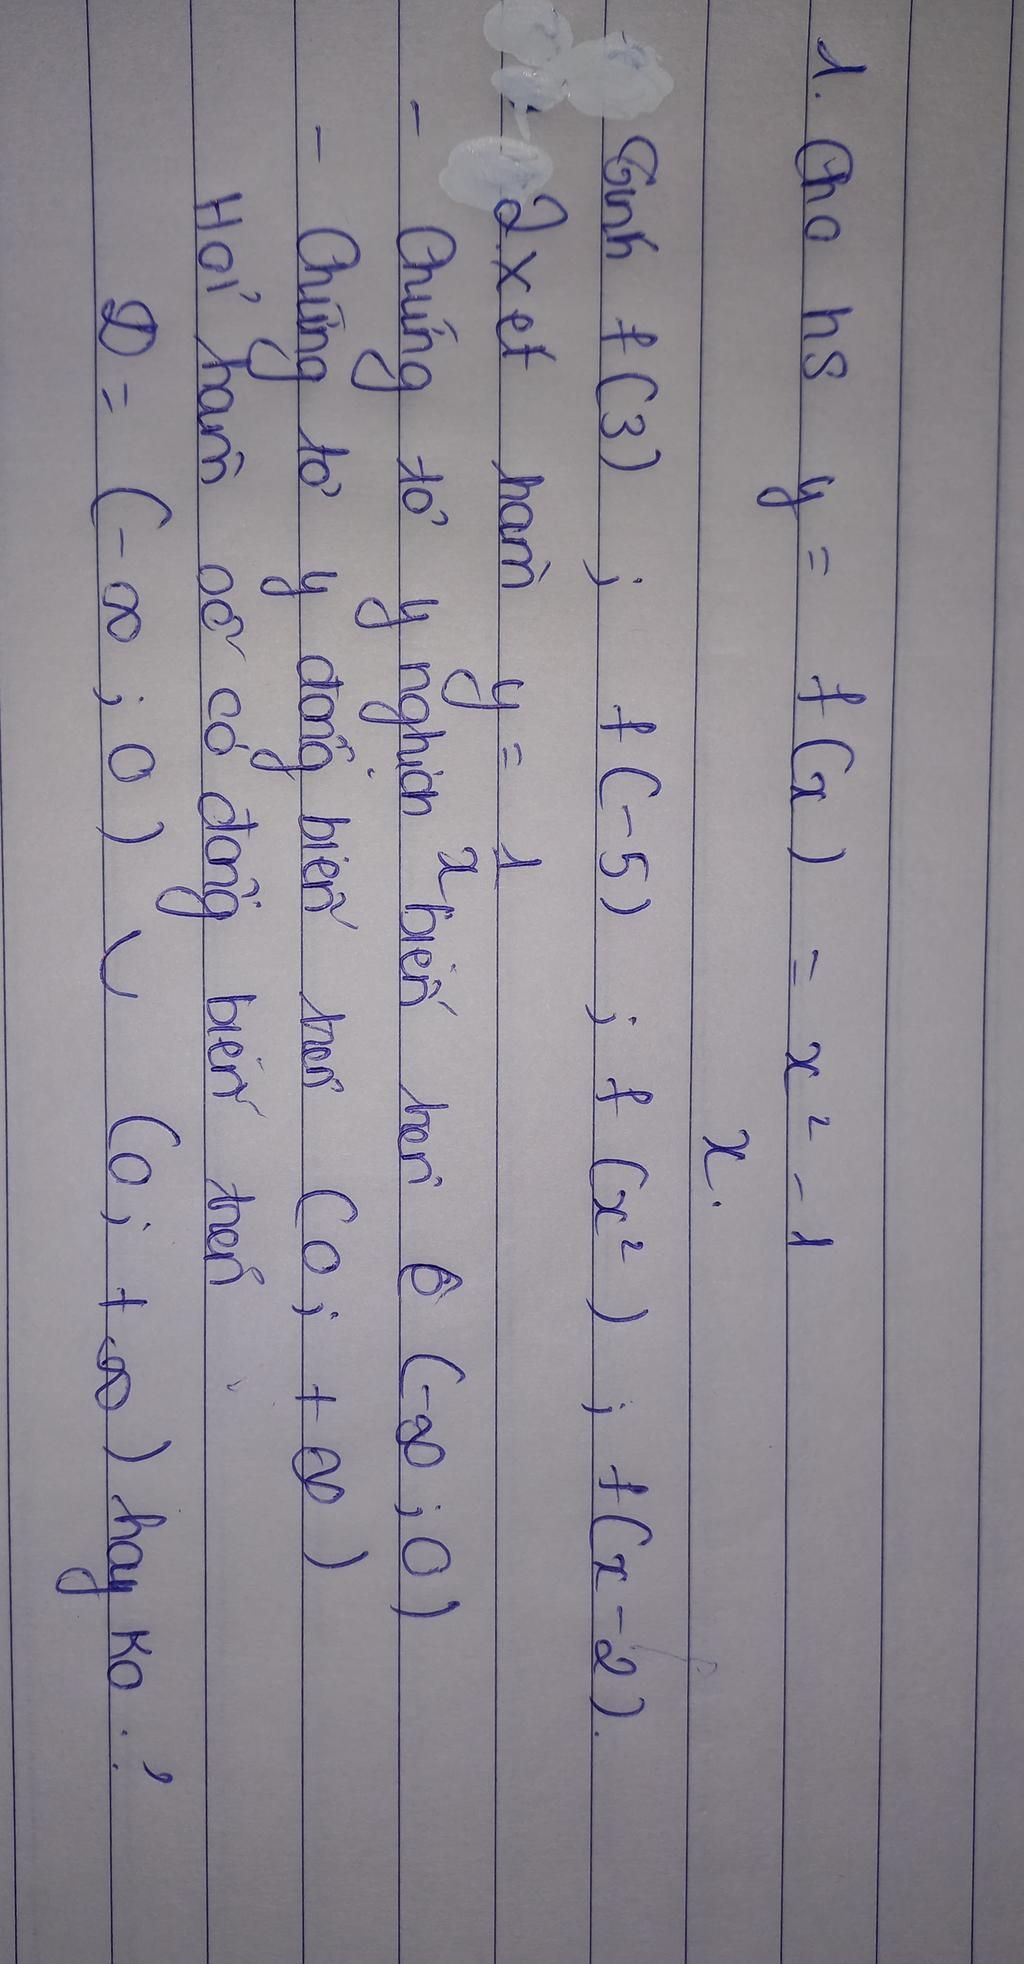 1. Cho hs y = f(x) = x² - 1
x.
Tính f(3) ; f(-5) ; f(x²) ; f(x-2).
2. xét hàm y = 1
x
- Chứng tỏ y nghịch biến trên (-∞ ; 0)
- Chứng tỏ y đồng biến trên (0 ; +∞)
Hỏi hàm số có đồng biến trên
D = (-∞ ; 0) ∪ (0 ; +∞) hay ko ?